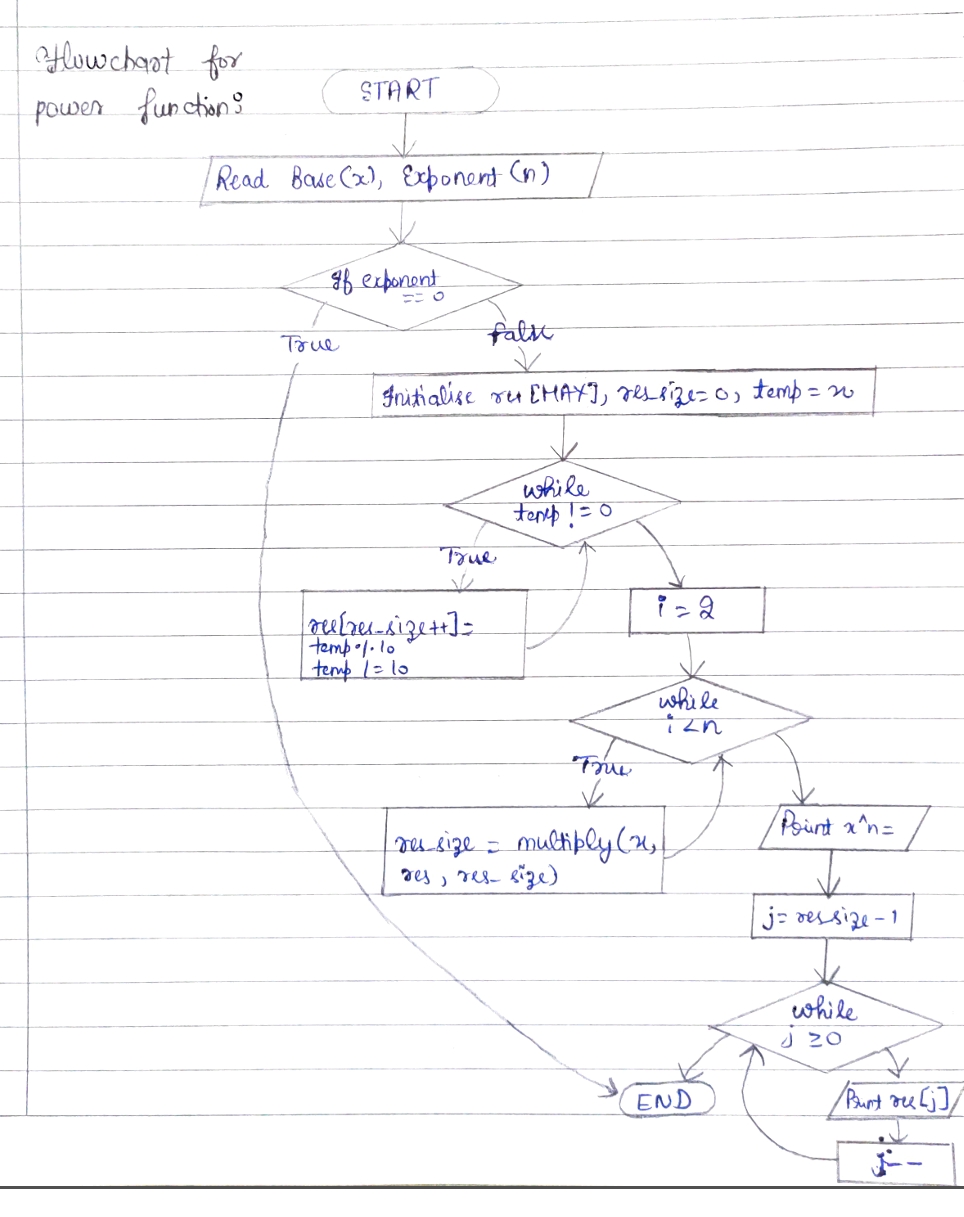 Flowchart for
power function:
START
Read Base(x), Exponent (n)
If exponent
== 0
True
False
Initialise res [MAX], res_size=0, temp = x
while
temp != 0
True
res[res_size++]=
temp % 10
temp /= 10
i = 2
while
i < n
True
res_size = multiply(x,
res, res_size)
Print x^n =
j= res size - 1
while
j ≥0
END
Print res[j]
j--